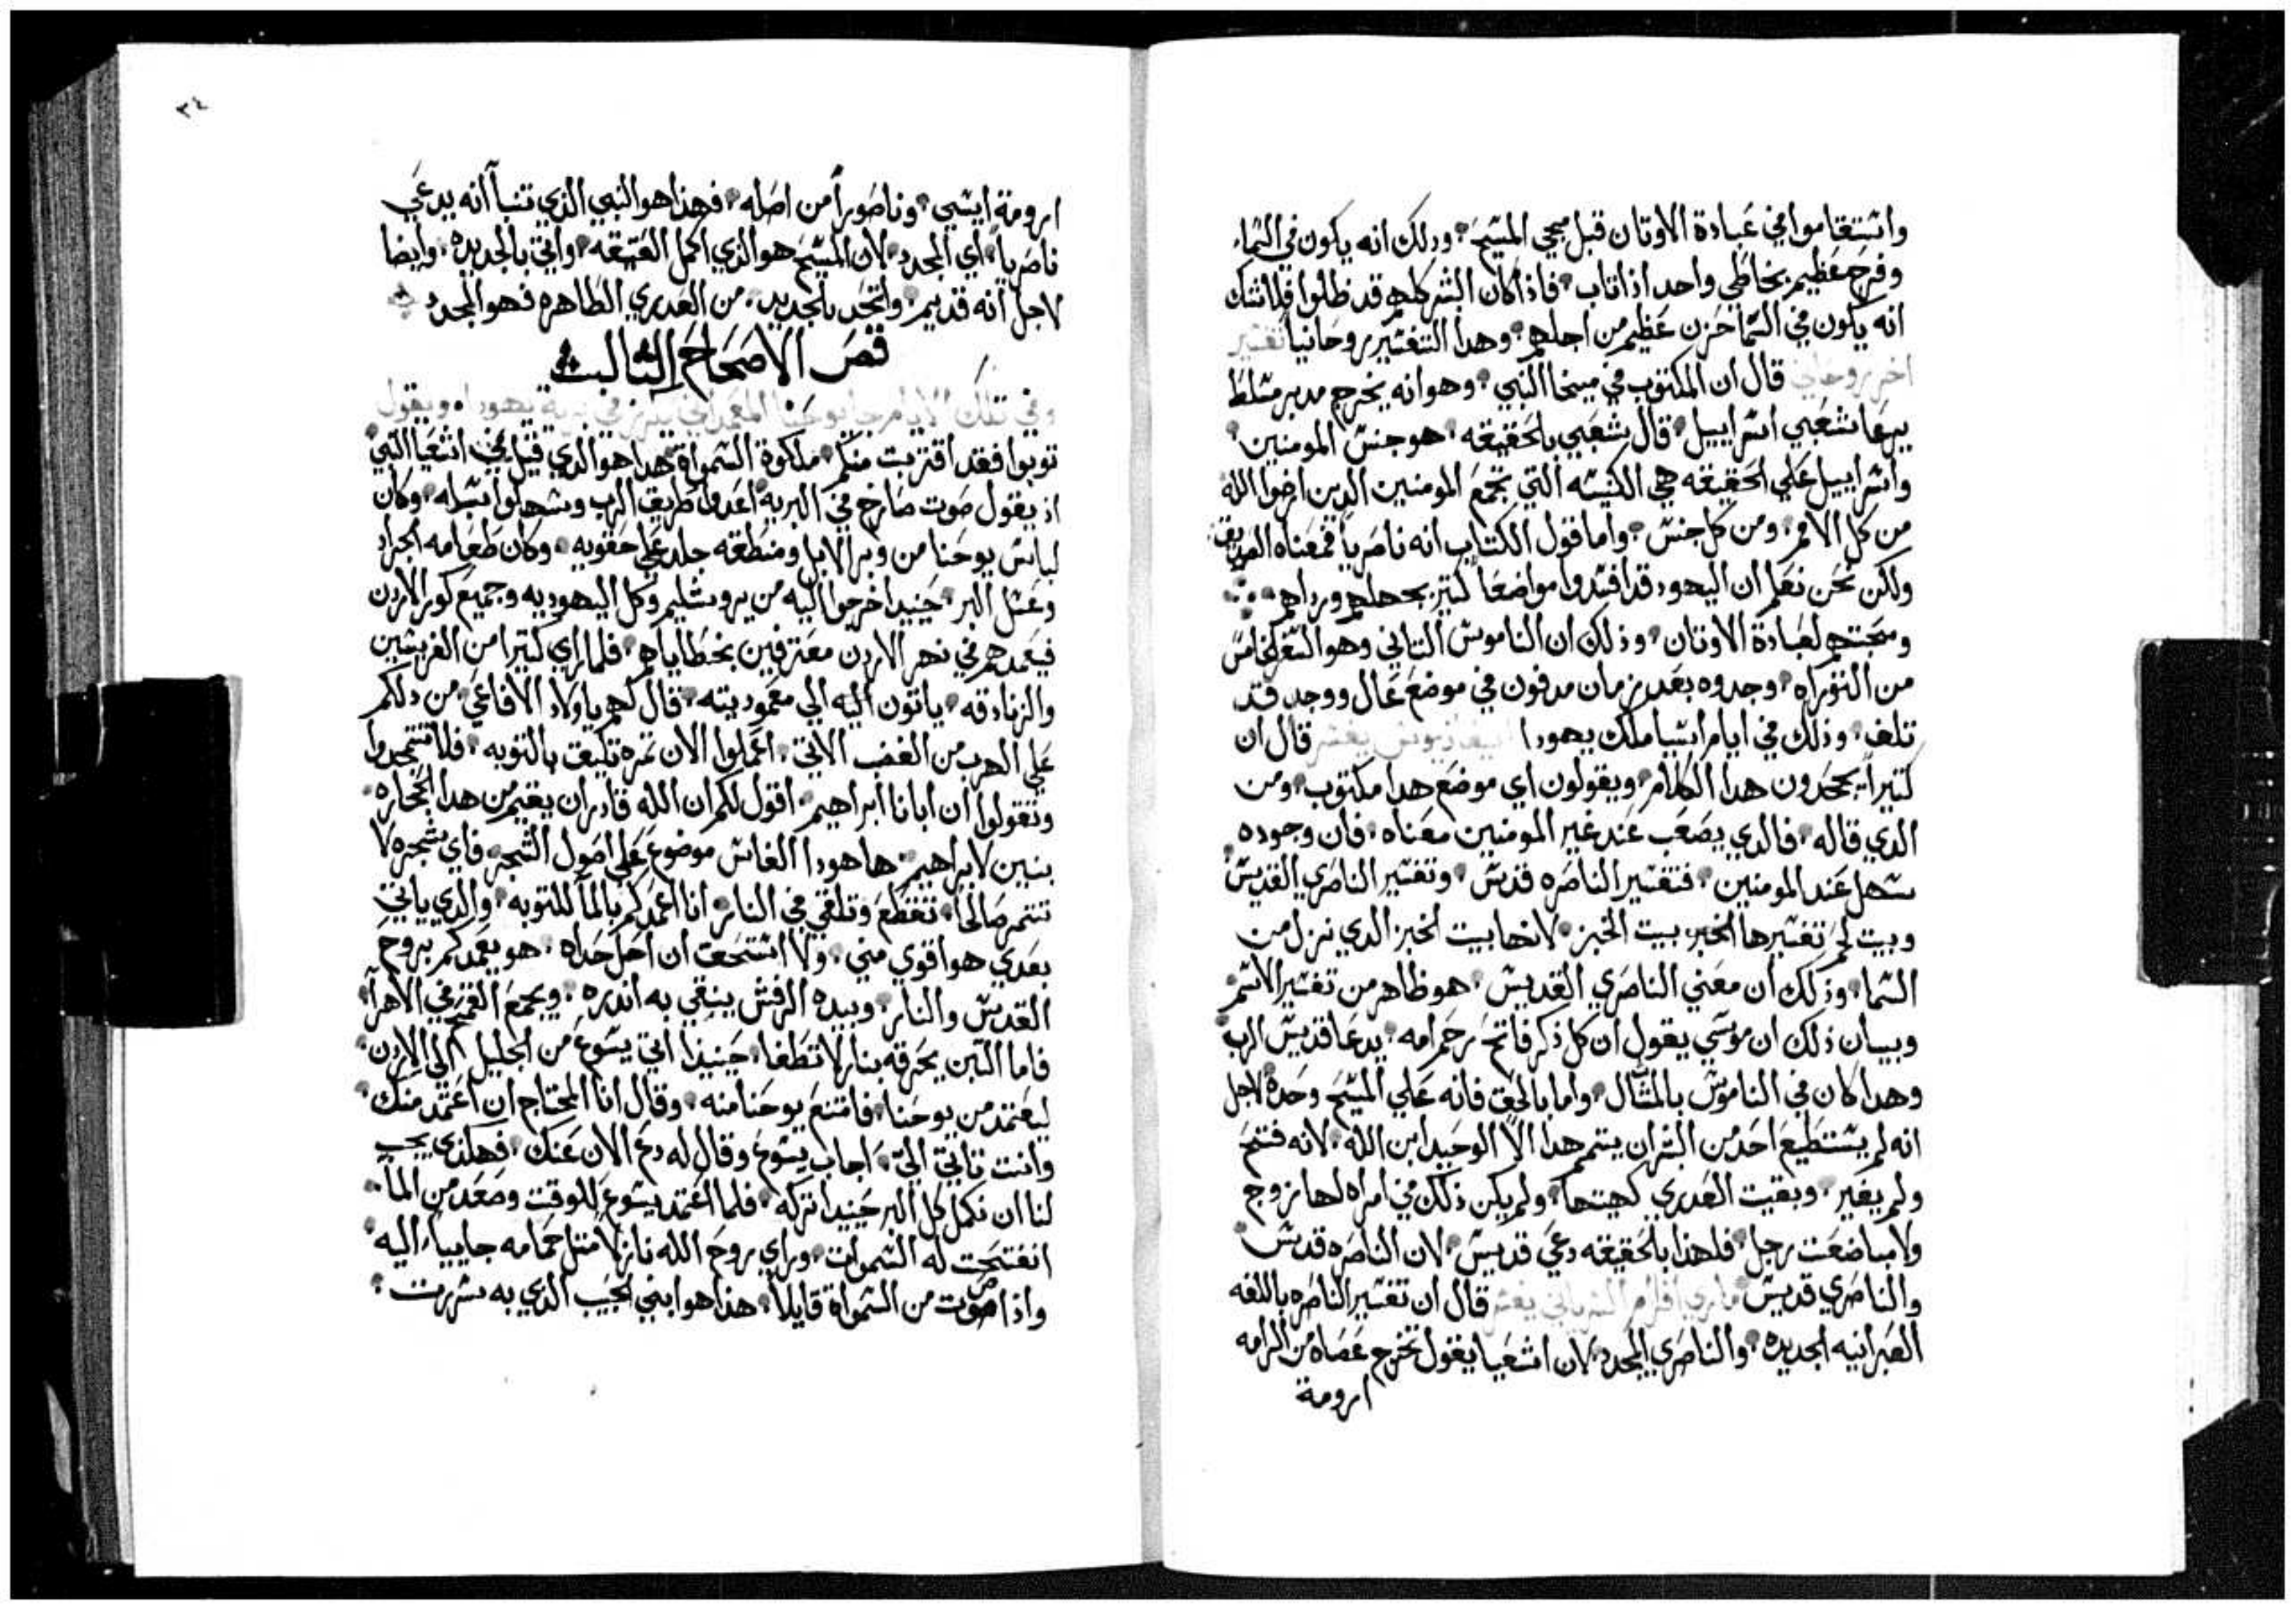 واستقاموا في عبادة الاوتان قبل مجي المسيح، ودلك انه يكون في السماء
وفرح عظيم بخاطي واحد اذا تاب، فاذا كان البشر كلهم قد ظلوا فلا شك
انه يكون في السما حزن عظيم من اجلهم، وهدا التفسير روحانيا تفسير
اخر روحاني قال ان المكتوب في ميخا النبي، وهو انه يخرج مدبر مسلط
يرعا شعبي اسراييل، قال شعبي بالحقيقه، هو جنس المومنين
واسراييل علي الحقيقه هي الكنيسه التي تجمع المومنين الدين ارضوا الله
من كل الامم، ومن كل جنس، واما قول الكتاب انه ناصريا فمعناه
ولكن نحن نعلم ان اليهود قد افسدوا مواضعا كتير بجهلهم
ومحبتهم لعبادة الاوتان، وذلك ان الناموس التاني وهو السفر الخامس
من التوراه، وجدوه بعد زمان مدفون في موضع عال ووجد قد
تلف، وذلك في ايام اشيا ملك يهودا يفسر قال ان
كتيرا يجحدون هدا الكلام، ويقولون اي موضع هدا مكتوب، ومن
الدي قاله، فالدي يصعب عند غير المومنين معناه، فان وجوده
سهل عند المومنين، فتفسير الناصره قدس، وتفسير الناصري القديس
وبيت لحم تفسيرها الخبر بيت الخبز، لانها بيت الخبز الدي نزل من
السما، وذلك ان معني الناصري القديس، هو ظاهر من تفسير الاسم
وبيان ذلك ان موسي يقول ان كل ذكر فاتح رحم امه، يدعا قديس الرب
وهدا كان في الناموس بالمتال، واما بالحق فانه علي المسيح وحده لاجل
انه لم يستطيع احد من البشر ان يتمم هدا الا الوحيد ابن الله، لانه فتح
ولم يغير، وبقيت العدري كهيتها، ولم يكن ذلك في امراه لها زوج
ولا مباضعت رجل، فلهذا بالحقيقه دعي قديس، لان الناصره قدس
والناصري قديس ماري افرام السرياني يفسر قال ان تفسير الناصره باللغه
العبرانيه الجديده، والناصري المجدد، لان اشعيا يقول تخرج عصاه من الرامه
ارومة
٣٤
ارومة ايسي، وناصورا من اصله، فهذا هو النبي الذي تنبا انه يدعي
ناصريا، اي المجدد، لان المسيح هو الذي اكمل العتيقه، واتي بالجديده، وايضا
لاجل انه قديم، واتحد بالجديد، من العدري الطاهره فهو المجدد
فص الاصحاح التالت
وفي تلك الايام جا يوحنا المعمداني يكرز في برية يهودا، ويقول
توبوا فقد اقتربت منكم، ملكوة السمواة، هدا هو الدي قيل في اشعيا النبي
اذ يقول صوت صارخ في البرية اعدوا طريق الرب وسهلوا سبله، وكان
لباس يوحنا من وبر الابل ومنطقه جلد علي حقويه، وكان طعامه الجراد
وعسل البر، حينيدا خرجوا اليه من يروشليم وكل اليهوديه وجميع كور الاردن
فيعمدهم في نهر الاردن معترفين بخطاياهم، فلما راي كتيرا من الفريسين
والزنادقه، ياتون اليه الي معموديته، قال لهم ياولاد الافاعي، من دلكم
علي الهرب من الغضب الاتي، اعملوا الان تمره تليق بالتوبه، فلا
وتقولوا ان ابانا ابراهيم، اقول لكم ان الله قادر ان يقيم من هدا الحجاره
بنيين لابراهيم، ها هودا الفاس موضوع علي اصول الشجر، فاي شجره لا
تتمر صالحا، تقطع وتلقي في النار، انا اعمدكم بالما للتوبه، والدي ياتي
بعدي هو اقوي مني، ولا استحق ان احل حداه، هو يعمدكم بروح
القدس والنار، وبيده الرفش ينقي به اندره، ويجمع القمح في الاهرا
فاما التبن يحرقه بنار لا تطفا، حينيذا اتي يسوع من الجليل الي الاردن
ليعتمد من يوحنا، فامتنع يوحنا منه، وقال انا المحتاج ان اعتمد منك
وانت تاتي الي، اجاب يسوع وقال له دع الان عنك، فهكذي يجب
لنا ان نكمل كل البر حينيدا تركه، فلما اعتمد يسوع للوقت وصعد من الما
انفتحت له السموات، وراي روح الله نازلا متل حمامه جاييا اليه
واذا صوت من السمواة قايلا، هذا هو ابني الحبيب الدي به سررت